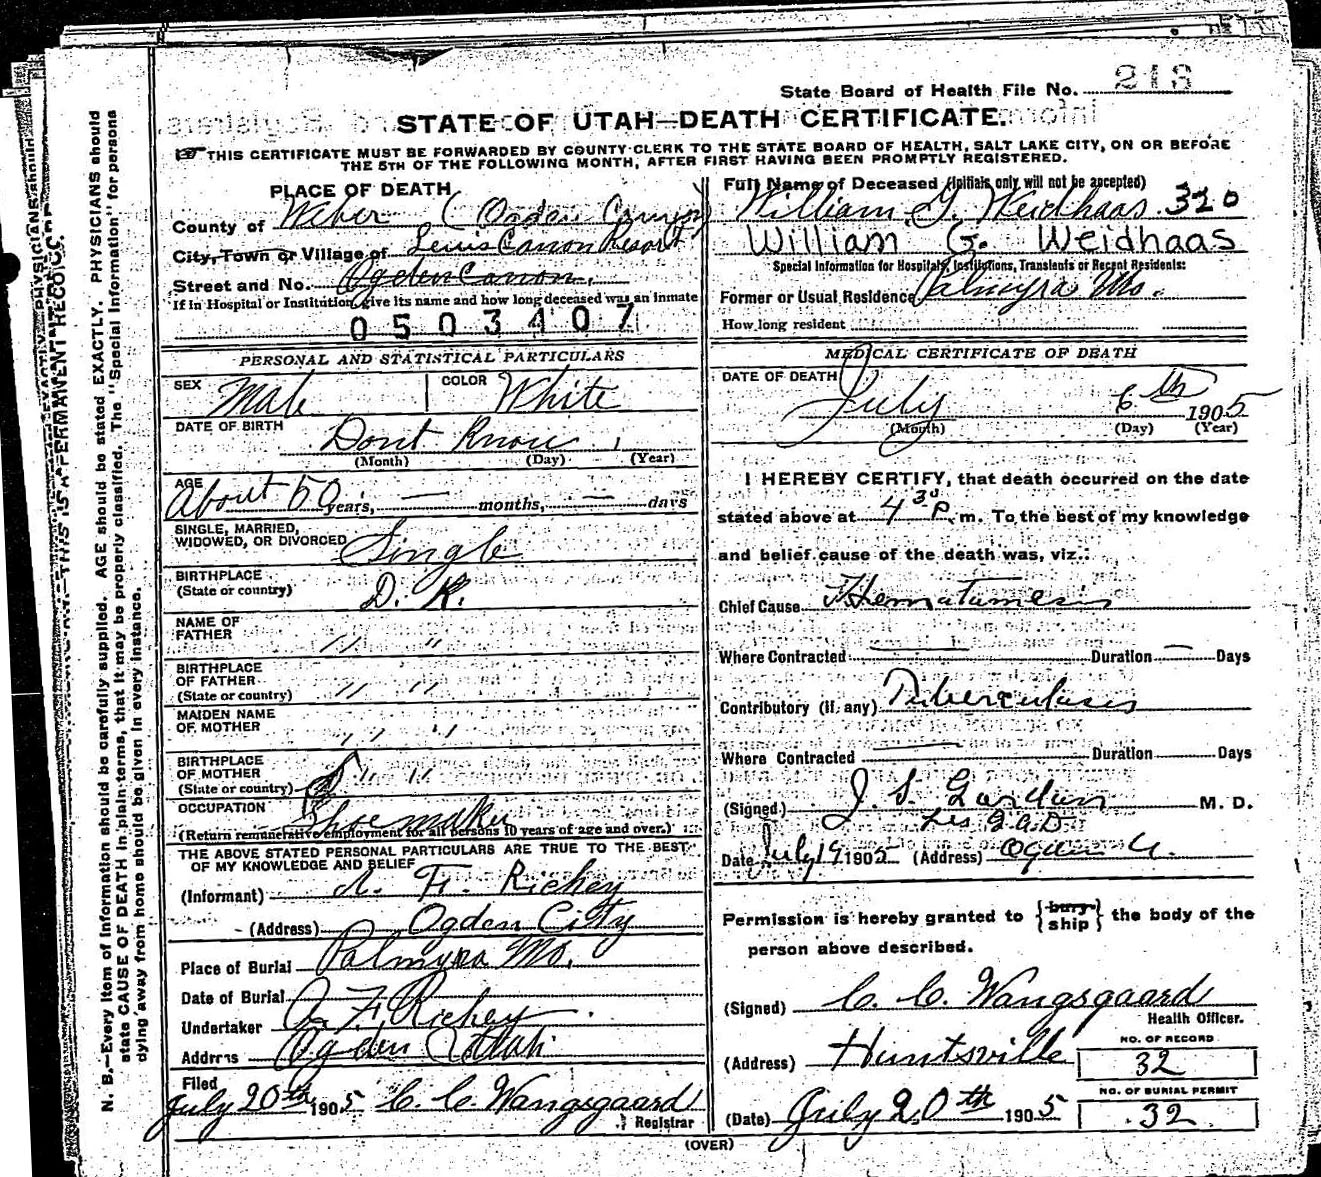 State Board of Health File No. 213
STATE OF UTAH—DEATH CERTIFICATE.
☞ THIS CERTIFICATE MUST BE FORWARDED BY COUNTY CLERK TO THE STATE BOARD OF HEALTH, SALT LAKE CITY, ON OR BEFORE
THE 5TH OF THE FOLLOWING MONTH, AFTER FIRST HAVING BEEN PROMPTLY REGISTERED.
PLACE OF DEATH
County of Weber (Ogden Canyon)
City, Town or Village of Lewis Canon Resort
Street and No. Ogden Canon.
If in Hospital or Institution, give its name and how long deceased was an inmate
0503407
PERSONAL AND STATISTICAL PARTICULARS
SEX Male COLOR White
DATE OF BIRTH Dont Know
(Month) (Day) (Year)
AGE About 50 years, — months, — days
SINGLE, MARRIED,
WIDOWED, OR DIVORCED Single
BIRTHPLACE
(State or country) D. K.
NAME OF
FATHER " "
BIRTHPLACE
OF FATHER
(State or country) " "
MAIDEN NAME
OF MOTHER " "
BIRTHPLACE
OF MOTHER
(State or country) " "
OCCUPATION Shoemaker
(Return remunerative employment for all persons 10 years of age and over.)
THE ABOVE STATED PERSONAL PARTICULARS ARE TRUE TO THE BEST
OF MY KNOWLEDGE AND BELIEF
(Informant) F. Richey
(Address) Ogden City
Place of Burial Palmyra Mo.
Date of Burial
Undertaker F. Richey
Address Ogden Utah
Filed
July 20th 1905 C. C. Wangsgaard
Registrar
Full Name of Deceased (Initials only will not be accepted)
William G. Weidhaas 320
William G. Weidhaas
Special Information for Hospitals, Institutions, Transients or Recent Residents:
Former or Usual Residence Palmyra Mo.
How long resident
MEDICAL CERTIFICATE OF DEATH
DATE OF DEATH
July 6th 1905
(Month) (Day) (Year)
I HEREBY CERTIFY, that death occurred on the date
stated above at 4 30 P. m. To the best of my knowledge
and belief cause of the death was, viz.:
Chief Cause Hematemesis
Where Contracted — Duration — Days
Contributory (if any) Tuberculosis
Where Contracted — Duration Days
(Signed) J. S. Gordon M. D.
Date July 19 1905 (Address) Ogden U.
Permission is hereby granted to {bury ship} the body of the
person above described.
(Signed) C. C. Wangsgaard
Health Officer.
(Address) Huntsville
NO. OF RECORD
32
(Date) July 20th 1905
NO. OF BURIAL PERMIT
32
(OVER)
N. B.—Every item of information should be carefully supplied. AGE should be stated EXACTLY. PHYSICIANS should
state CAUSE OF DEATH in plain terms, that it may be properly classified. The "Special Information" for persons
dying away from home should be given in every instance.
THIS IS A PERMANENT RECORD.